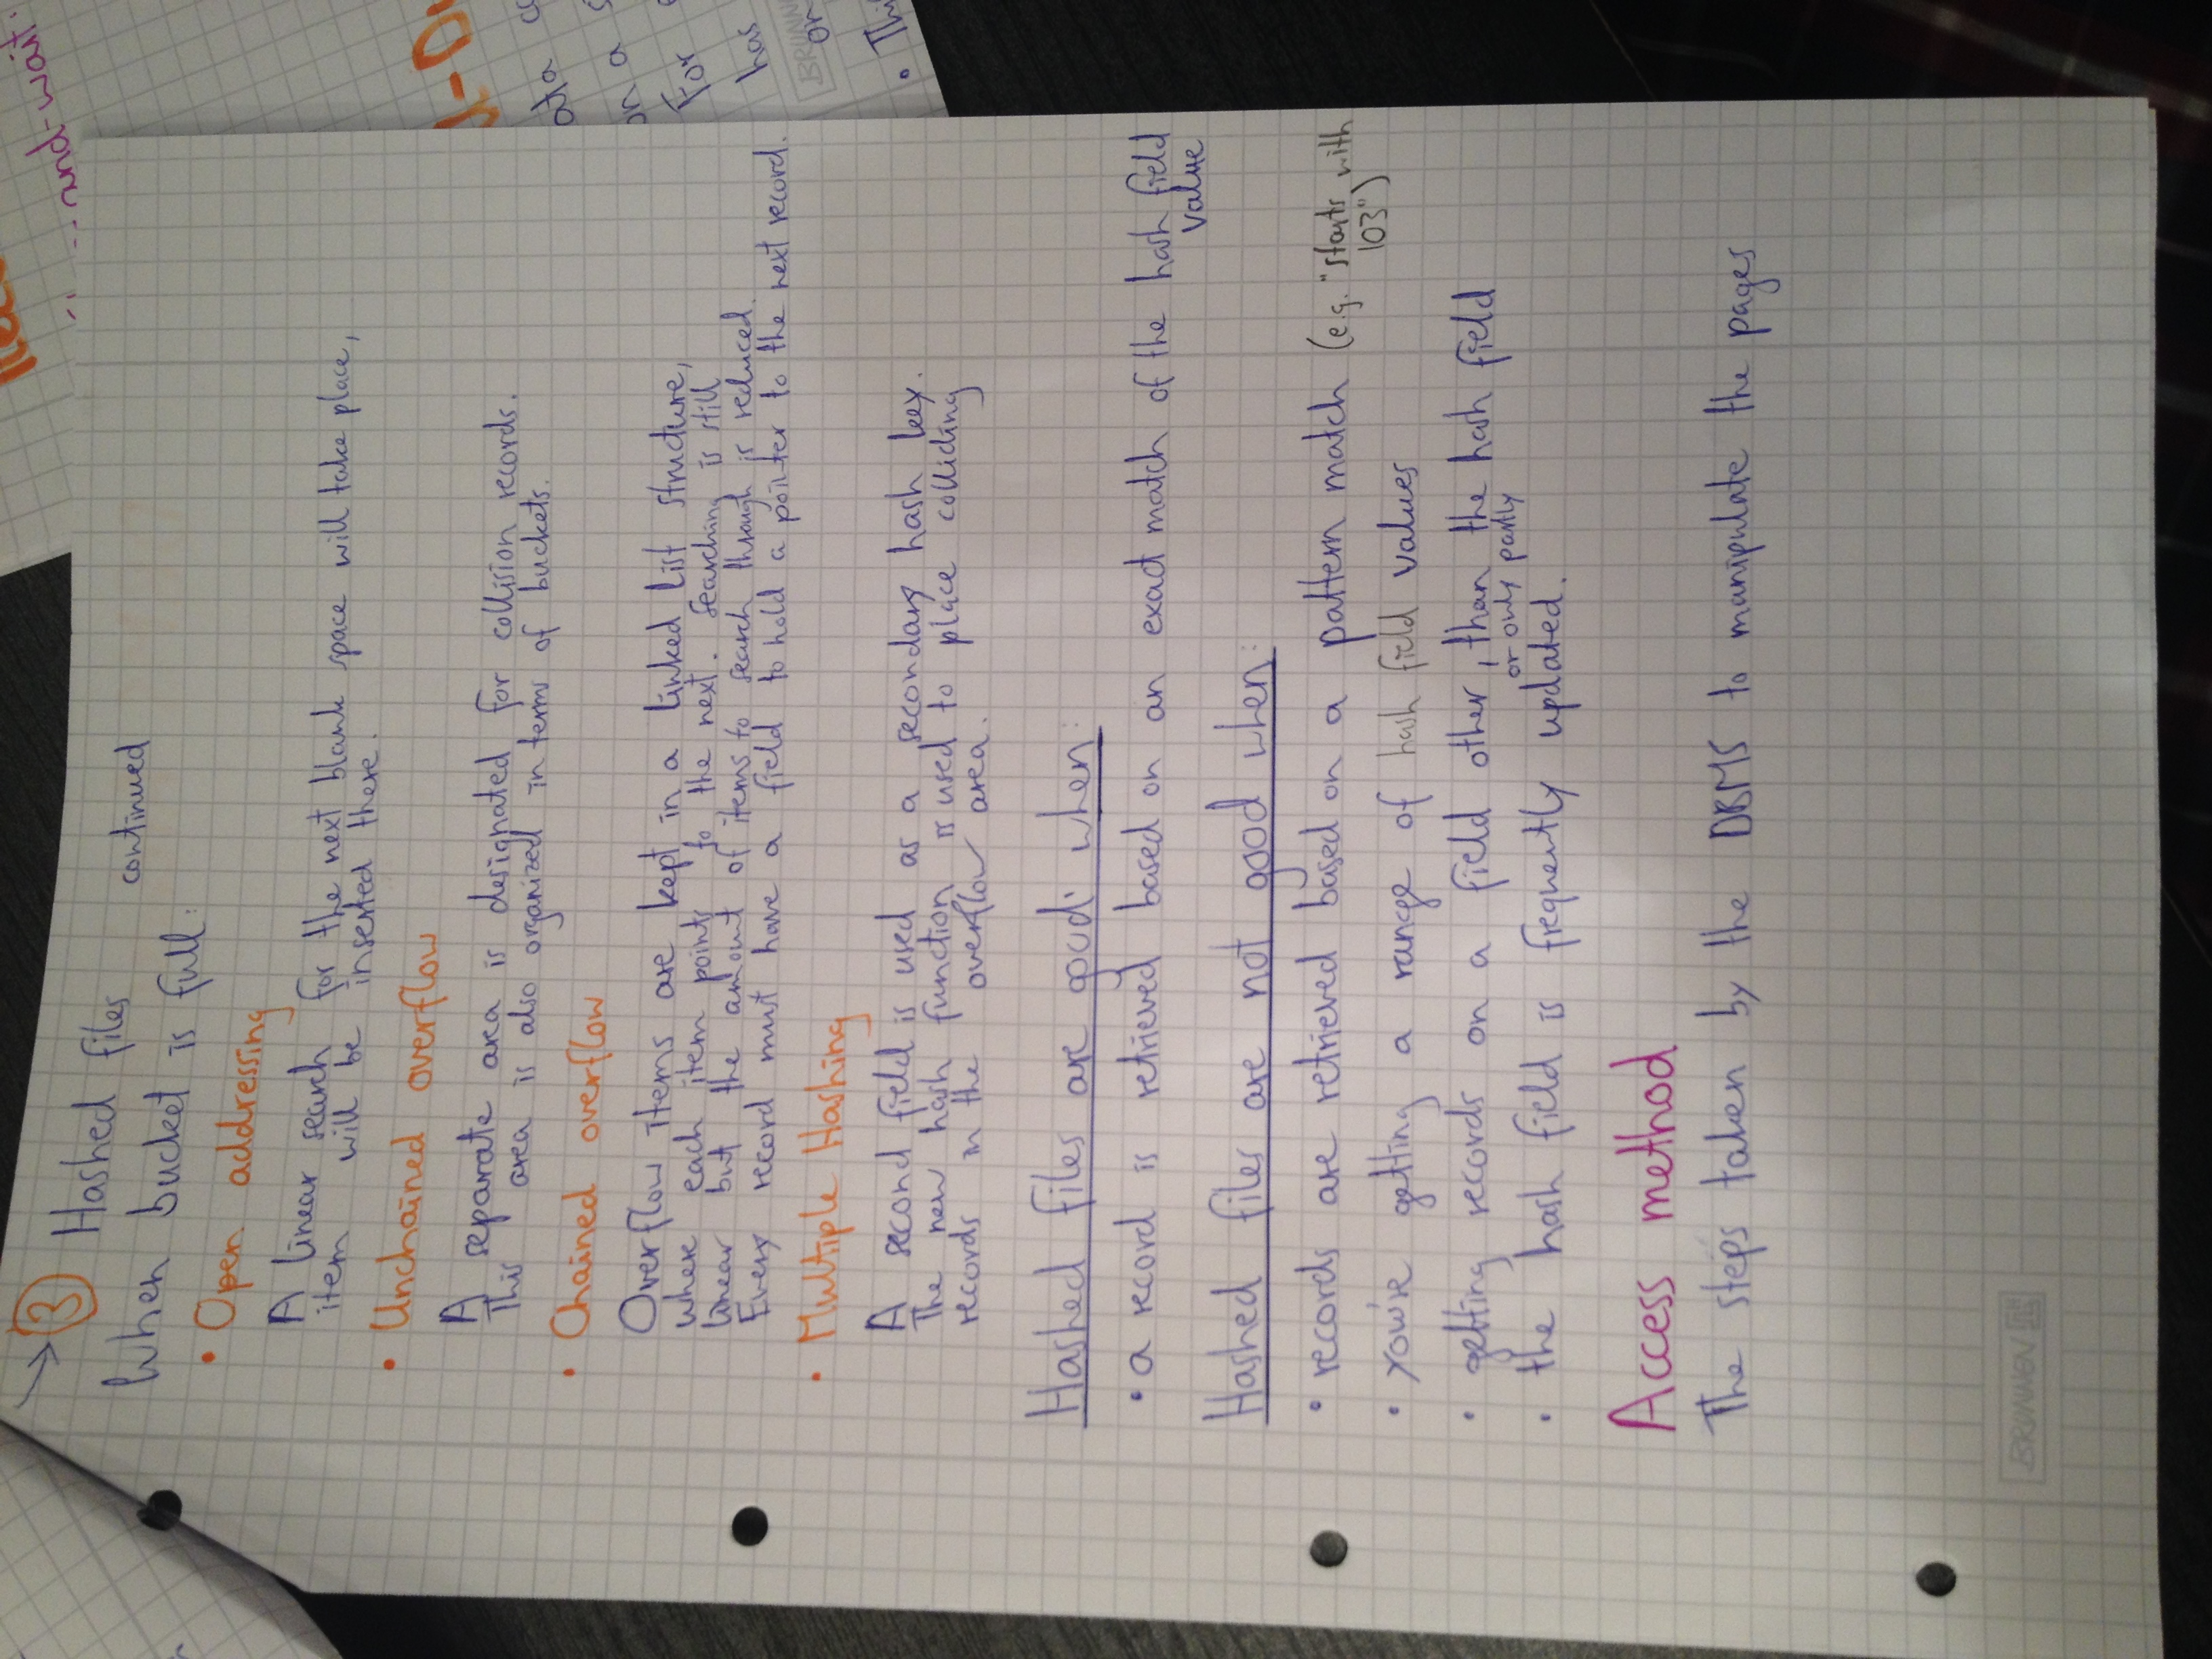 → ③ Hashed files continued
When bucket is full:
• Open addressing
A linear search for the next blank space will take place,
item will be inserted there.
• Unchained overflow
A separate area is designated for collision records.
This area is also organized in terms of buckets.
• Chained overflow
Overflow items are kept in a linked list structure,
where each item points to the next. Searching is still
linear but the amount of items to search through is reduced.
Every record must have a field to hold a pointer to the next record.
• Multiple Hashing
A second field is used as a secondary hash key.
The new hash function is used to place colliding
records in the overflow area.
Hashed files are good when:
• a record is retrieved based on an exact match of the hash field
value
Hashed files are not good when:
• records are retrieved based on a pattern match (e.g. "starts with
103")
• you're getting a range of hash field values
• getting records on a field other, than the hash field
or only partly
• the hash field is frequently updated.
Access method
The steps taken by the DBMS to manipulate the pages
BRUNNEN
and-wait:
ata
on a
For
has
BRUNN
on